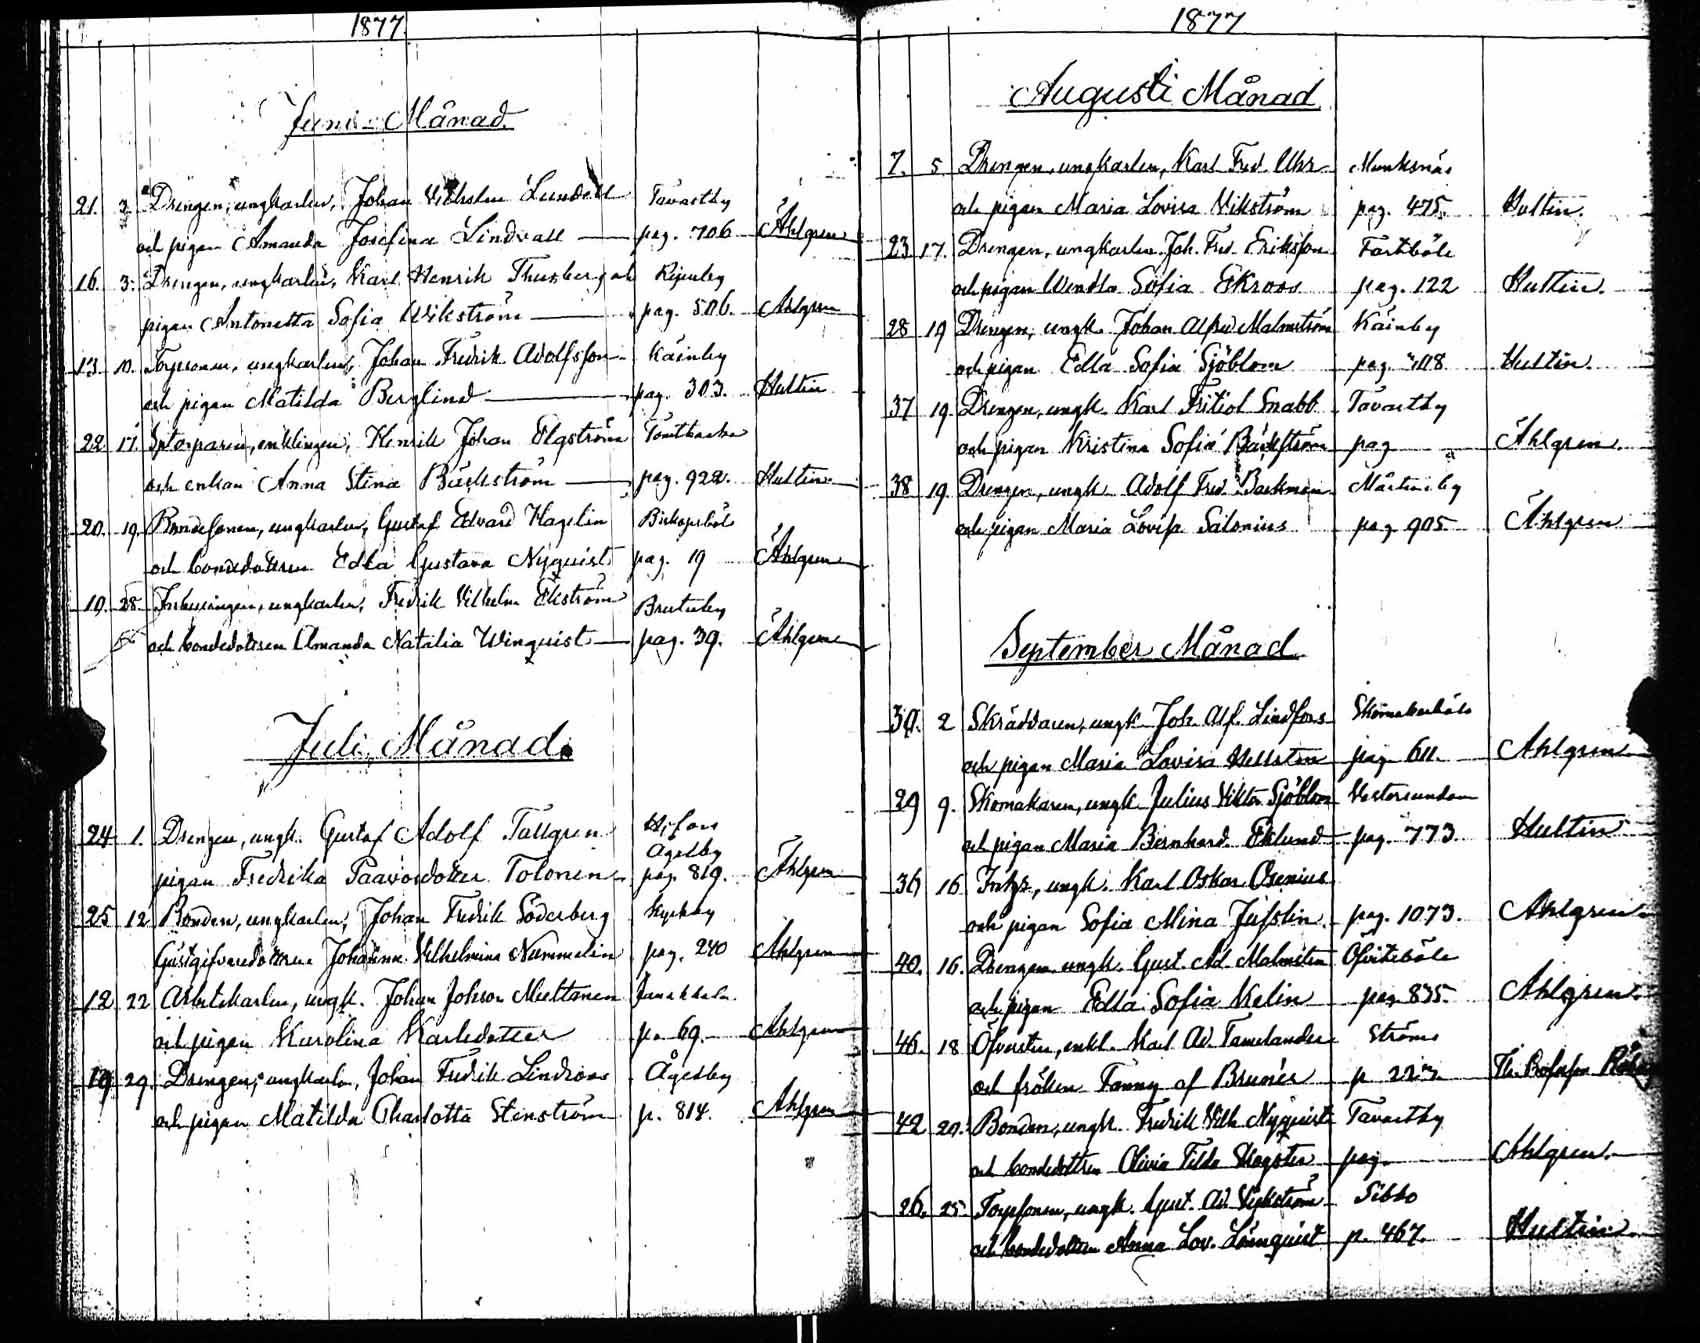 1877
Juni Månad
21. 3. Drengen, ungkarlen, Johan Vilhelm Lundell Tavastby
och pigan Amanda Josefina Lindvall pag. 706 Åhlgren
16. 3. Drengen, ungkarlen, Karl Henrik Thusberg och
pigan Antonetta Sofia Wikström pag. 506. Ahlgren
13. 10. Torpsonen, ungkarlen, Johan Fredrik Adolfsson Käinby
och pigan Matilda Berglind pag. 303. Hultin
22 17. enklingen, Henrik Johan Elgström
och enkan Anna Stina Bäckström pag. 922. Hultin
20. 19. Bondesonen, ungkarlen, Gustaf Edvard Hagelin Biskopsböle
och bondedottren Edla Gustava Nyquist pag. 19 Åhlgren
19. 28. Inhysingen, ungkarlen, Fredrik Vilhelm Ekström
och bondedottren Amanda Natalia Winquist pag. 39. Åhlgren
Juli Månad.
24 1. Drengen, ungk. Gustaf Adolf Tallgren H:fors
Ågelby
pigan Fredrika Paavosdotter Tolonen pag. 819. Åhlgren
25 12 Bonden, ungkarlen, Johan Fredrik Söderberg Kyrkby
Gästgifvaredottren Johanna Vilhelmina Nummelin pag. 240 Ahlgren
12 22 Arbetskarlen, ungk. Johan Johsson Miettinen Janakkala
och pigan Karolina Karlsdotter p. 69. Ahlgren
19 29. Drengen, ungkarlen, Johan Fredrik Lindroos Ågelby
och pigan Matilda Charlotta Stenström p. 814. Ahlgren
1877
Augusti Månad
7. 5 Drengen, ungkarlen, Karl Fred. Munksnäs
och pigan Maria Lovisa Vikström pag. 475. Hultin.
23 17. Drengen, ungkarlen Joh. Fred. Eriksson
och pigan Wendla Sofia Ekroos pag. 122 Hultin.
28 19 Drengen, ungk. Johan Alfred Malmström Käinby
och pigan Edla Sofia Sjöblom pag. 408 Hultin.
37 19. Drengen, ungk. Karl Fritiof Snabb Tavastby
och pigan Kristina Sofia Bäckström pag Åhlgren.
38 19. Drengen, ungk. Adolf Fred. Backman Mårtensby
och pigan Maria Lovisa Salonius pag. 905. Åhlgren
September Månad
39. 2 Skräddaren, ungk. Joh. Alf. Lindfors Skomakarböle
och pigan Maria Lovisa Hellsten pag. 611. Ahlgren.
29 9. Skomakaren, ungk. Julius Viktor Sjöblom Vestersundom
och pigan Maria Bernhard. Eklund pag. 773. Hultin
36 16 ungk. Karl Oskar Osenius
och pigan Sofia Mina pag. 1073. Ahlgren.
40. 16. Drengen, ungk. Gust. Ad. Malmsten Öfvitsböle
och pigan Edla Sofia Velin pag. 835. Ahlgren.
46. 18 Öfversten, enkl. Karl Ad. Tamelander Ströms
och fröken Fanny af Brunér p. 227.
42 20. Bonden, ungk. Fredrik Vilh. Nyquist Tavastby
och bondedottren Olivia Tilda Hagster pag. Ahlgren.
26. 25. Torpsonen, ungk. Gust. Ad. Vickström Sibbo
och bondedottren Anna Lov. Lönnquist p. 467. Hultin.